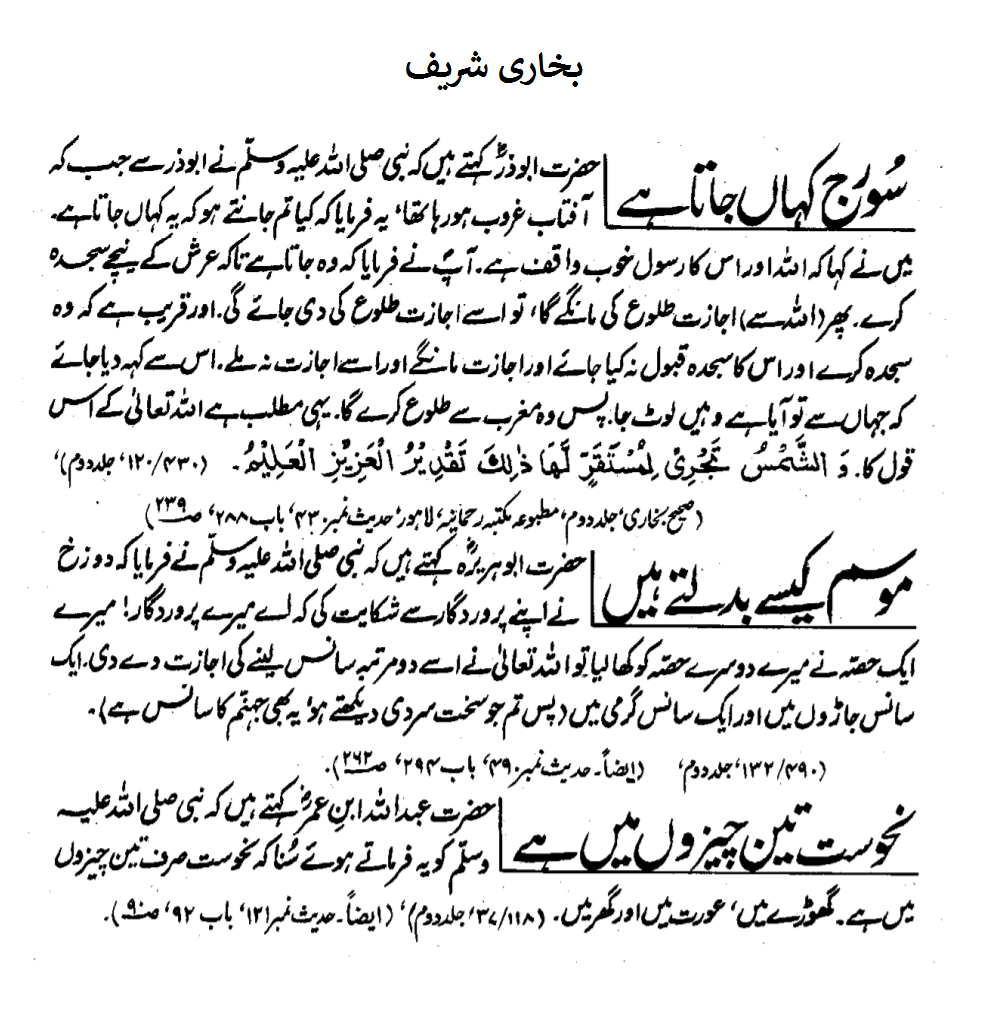 بخاری شریف
سُورج کہاں جاتا ہے
حضرت ابوذرؓ کہتے ہیں کہ نبی صلی اللہ علیہ وسلّم نے ابوذر سے جب کہ
آفتاب غروب ہو رہا تھا، یہ فرمایا کہ کیا تم جانتے ہو کہ یہ کہاں جاتا ہے۔
میں نے کہا کہ اللہ اور اس کا رسول خوب واقف ہے۔ آپؐ نے فرمایا کہ وہ جاتا ہے تاکہ عرش کے نیچے سجدہ
کرے۔ پھر (اللہ سے) اجازت طلوع کی مانگے گا، تو اسے اجازت طلوع کی دی جائے گی۔ اور قریب ہے کہ وہ
سجدہ کرے اور اس کا سجدہ قبول نہ کیا جائے اور اجازت مانگے اور اسے اجازت نہ ملے۔ اس سے کہہ دیا جائے
کہ جہاں سے تو آیا ہے وہیں لوٹ جا۔ پس وہ مغرب سے طلوع کرے گا۔ یہی مطلب ہے اللہ تعالیٰ کے اس
قول کا۔ وَ الشَّمْسُ تَجْرِیْ لِمُسْتَقَرٍّ لَّهَا ذٰلِكَ تَقْدِیْرُ الْعَزِیْزِ الْعَلِیْمُ۔ (۱۲۰/۴۳۰، جلد دوم)،
(صحیح بخاری، جلد دوم، مطبوعہ مکتبہ رحمانیہ، لاہور، حدیث نمبر ۴۳۰، باب ۲۸۸، صـ ۲۳۹)
موسم کیسے بدلتے ہیں
حضرت ابوہریرہؓ کہتے ہیں کہ نبی صلی اللہ علیہ وسلّم نے فرمایا کہ دوزخ
نے اپنے پروردگار سے شکایت کی کہ اے میرے پروردگار! میرے
ایک حصّہ نے میرے دوسرے حصّہ کو کھا لیا تو اللہ تعالیٰ نے اسے دو مرتبہ سانس لینے کی اجازت دے دی۔ ایک
سانس جاڑوں میں اور ایک سانس گرمی میں (پس تم جو سخت سردی دیکھتے ہو، یہ بھی جہنّم کا سانس ہے)۔
(۱۳۲/۴۹۰، جلد دوم، (ایضاً۔ حدیث نمبر ۴۹۰، باب ۲۹۴، صـ ۲۶۲)۔
نحوست تین چیزوں میں ہے
حضرت عبداللہ ابنِ عمرؓ کہتے ہیں کہ نبی صلی اللہ علیہ
وسلّم کو یہ فرماتے ہوئے سُنا کہ نحوست صرف تین چیزوں
میں ہے۔ گھوڑے میں، عورت میں اور گھر میں۔ (۳۷/۱۱۸، جلد دوم)، (ایضاً۔ حدیث نمبر ۱۲۱، باب ۹۲، صـ ۹۰)۔